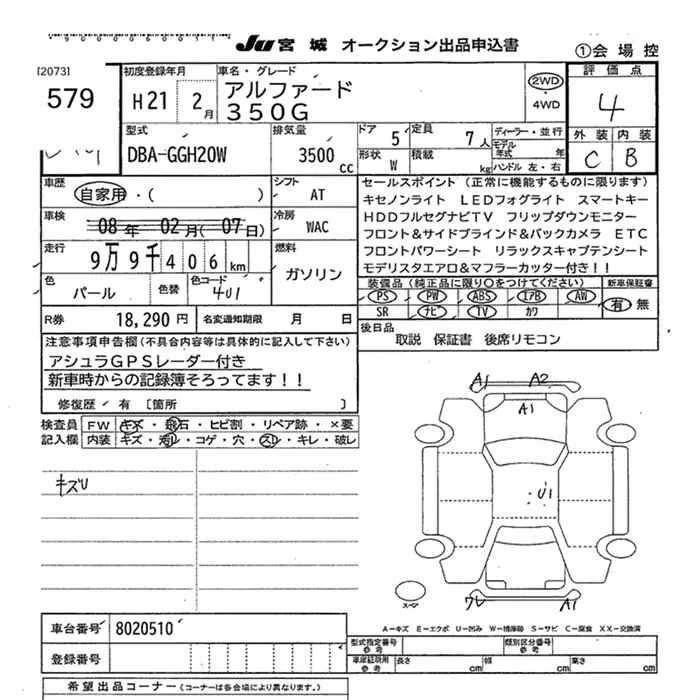 Ju 宮城 オークション出品申込書
①会場控
[2073]
579
初度登録年月
H21 2月
車名・グレード
アルファード
350G
2WD
・
4WD
評価点
4
外装 内装
C B
型式
DBA-GGH20W
排気量
3500cc
ドア 5
定員 7人
形状 W
積載 kg
ディーラー・並行
モデル年式 年
ハンドル 左・右
車歴
自家用・( )
シフト AT
車検
08年 02月(07日)
冷房 WAC
走行
9万9千406km
燃料
ガソリン
色
パール
色替
色コード
4U1
R券 18,290円
名変通知期限 月 日
セールスポイント (正常に機能するものに限ります)
キセノンライト LEDフォグライト スマートキー
HDDフルセグナビTV フリップダウンモニター
フロント&サイドブラインド&バックカメラ ETC
フロントパワーシート リラックスキャプテンシート
モデリスタエアロ&マフラーカッター付き!!
装備品(純正品に限り〇をつけてください) 新車保証書
PS PW ABS エアB AW
SR ナビ TV カワ
有 無
後日品
取説 保証書 後席リモコン
注意事項申告欄(不具合内容等は具体的に記入して下さい)
アシュラGPSレーダー付き
新車時からの記録簿そろってます!!
修復歴・有 〔箇所 〕
検査員記入欄
FW キズ・飛石・ヒビ割・リペア跡・×要
内装 キズ・汚レ・コゲ・穴・スレ・キレ・破レ
キズU
A1 A2
A1
U1
ワレ A1
スペア
A-キズ E-エクボ U-凹み W-補修跡 S-サビ C-腐食 XX-交換済
車台番号 8020510
登録番号
型式指定番号 参考
類別区分番号 参考
車庫証明用 参考 長さ cm 幅 cm 高さ cm
希望出品コーナー (コーナーは各会場により異なります。)